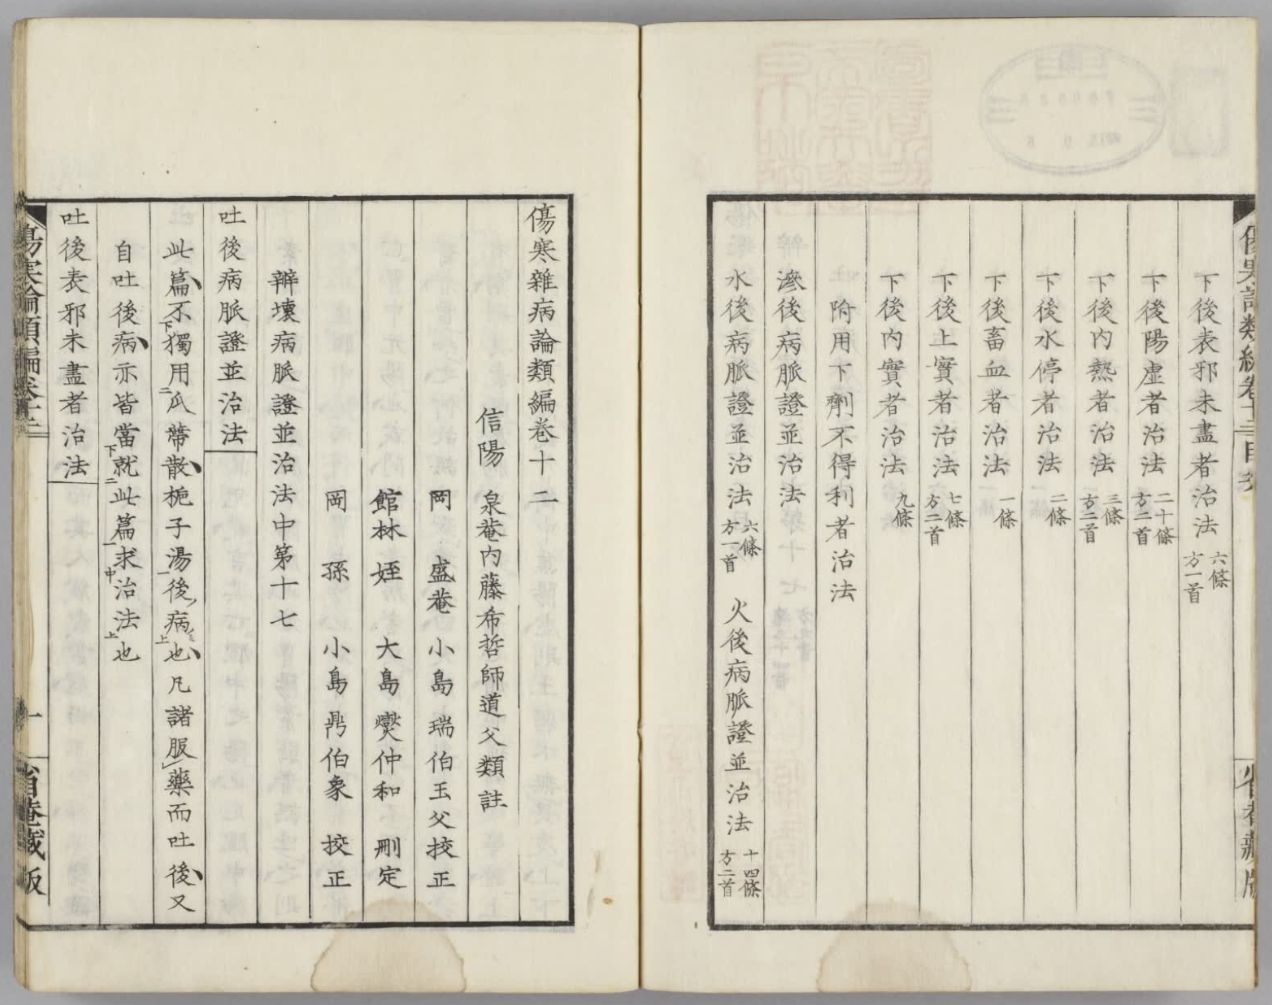 下後表邪未盡者治法 六條 方一首
下後陽虛者治法 二十條 方二首
下後內熱者治法 三條 方二首
下後水停者治法 二條
下後畜血者治法 一條
下後上實者治法 七條 方二首
下後內實者治法 九條
附用下劑不得利者治法
滲後病脈證並治法
水後病脈證並治法 六條 方一首 火後病脈證並治法 十四條 方二首
傷寒雜病論類編卷十二
信陽 泉菴內藤希哲師道父類註
岡 盛菴 小島瑞伯玉父挍正
館林 姪 大島爕仲和 刪定
岡 孫 小島鼎伯象 挍正
辯壞病脈證並治法中第十七
吐後病脈證並治法
此篇不獨用瓜蔕散梔子湯後病也凡諸服藥而吐後又
自吐後病亦皆當就此篇求治法也
吐後表邪未盡者治法
傷寒論類編卷十二
一
省菴藏版